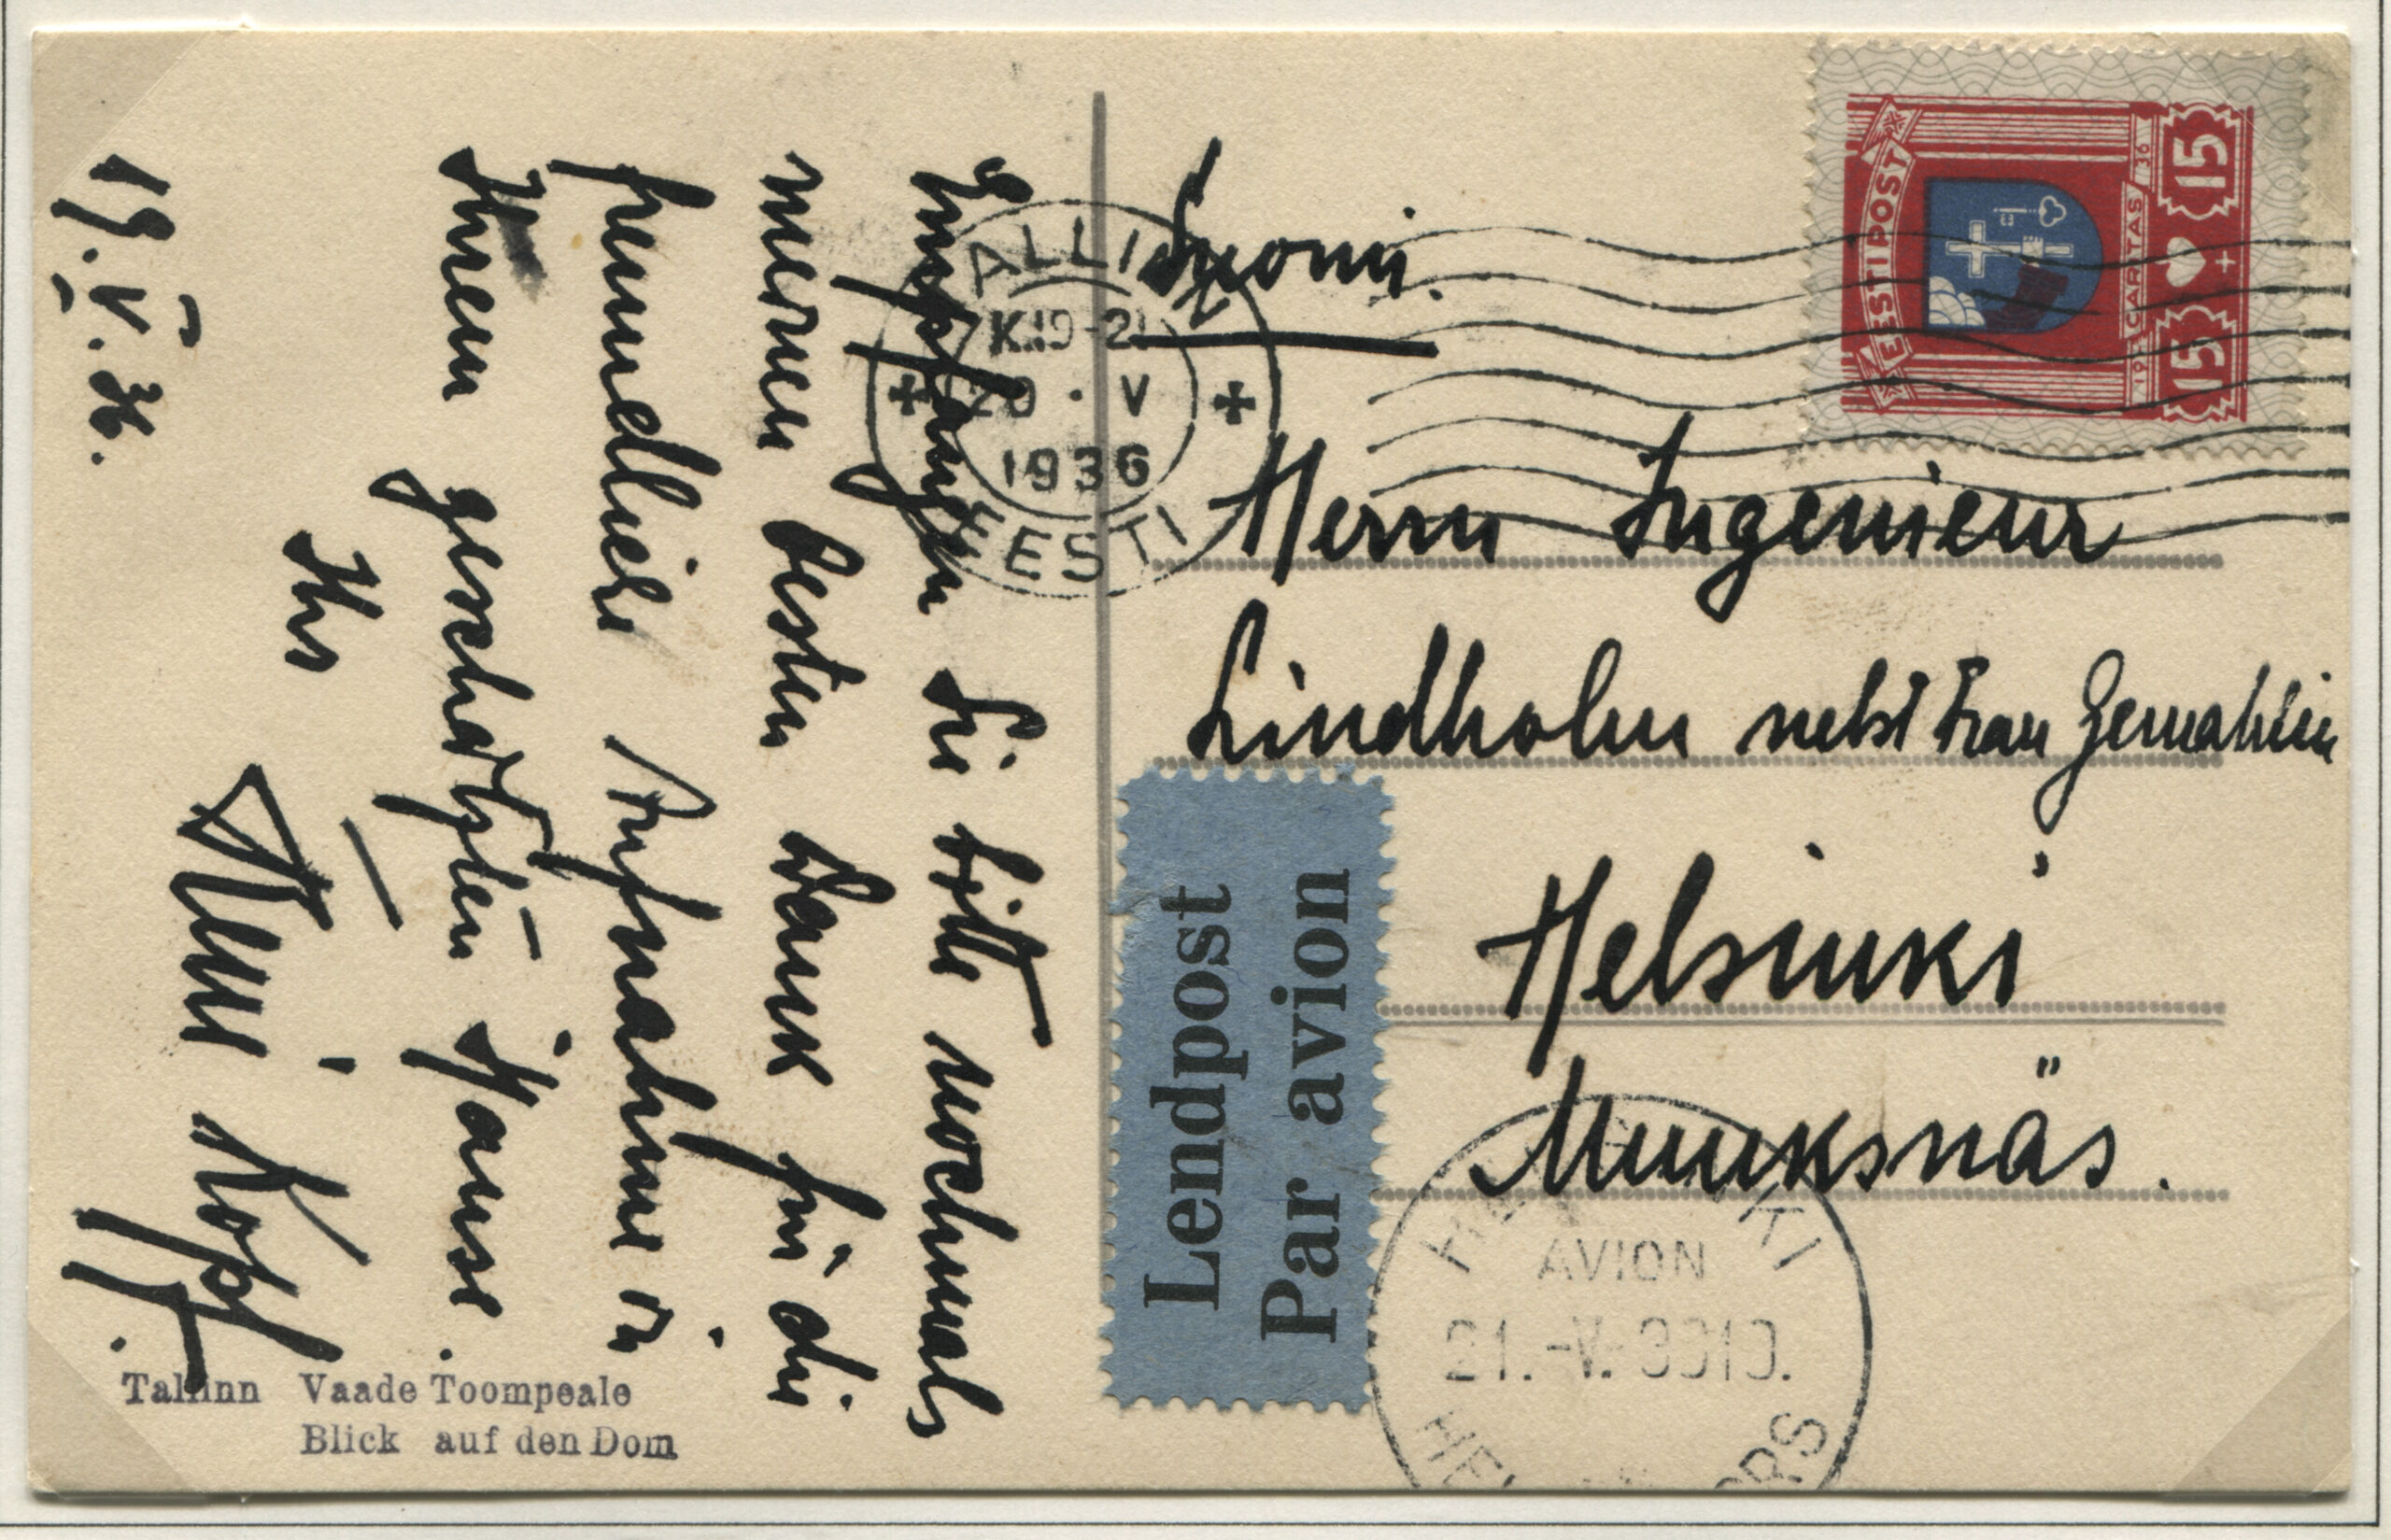 Empfangen Sie bitte nochmals
meinen besten Dank für die
freundliche Aufnahme in
Ihrem geschätzten Hause.
Ihr
Kopf.
19.V.36.
Tallinn Vaade Toompeale
Blick auf den Dom
TALLINN
K.19-21
20 · V
1936
EESTI
Suomi.
EESTI POST
1936 CARITAS 36
15 + 15
Herrn Ingenieur
Lindholm nebst Frau Gemahlin
Helsinki
Munksnäs.
Lendpost
Par avion
HELSINKI
AVION
21.-V.-3610.
HELSINGFORS